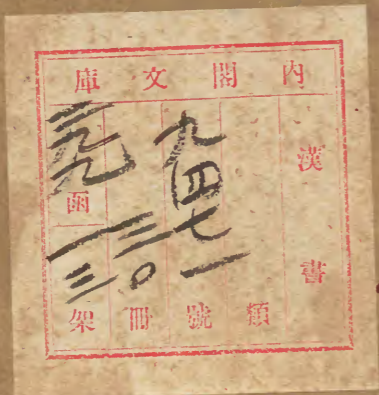 內閣文庫
漢書類
九四七一號
三〇冊
函
架